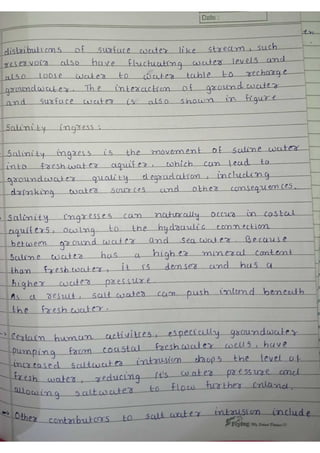 Date :
distributions of surface water like stream, such
reservoir also have fluctuating water levels and
also loose water to water table to recharge
groundwater. The interaction of ground water
and surface water is also shown in figure
Salinity ingress :
Salinity ingress is the movement of saline water
into freshwater aquifer, which can lead to
groundwater quality degradation, including
drinking water sources and other consequences.
Salinity ingresses can naturally occur in costal
aquifers, owing to the hydraulic connection
between ground water and sea water. Because
saline water has a higher mineral content
than freshwater, it is denser and has a
higher water pressure.
As a result, salt water can push inland beneath
the fresh water.
→ Certain human activities, especially groundwater
pumping from coastal freshwater wells, have
increased saltwater intrusion drops the level of
fresh water, reducing it's water pressure and
allowing saltwater to flow further inland.
→ Other contributors to salt water intrusion include
Flying